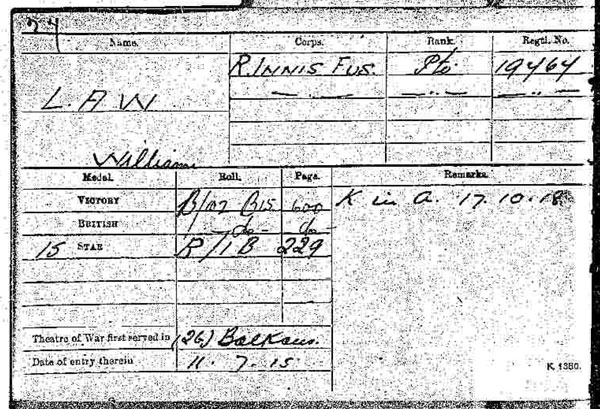 24
Name. Corps. Rank. Regtl. No.
R. INNIS FUS. Pte 19464
LAW — " — — " — — " —
William
Medal. Roll. Page. Remarks.
VICTORY B/102 B15 600 K in A. 17.10.18
BRITISH — do — do —
15 STAR R/1 B 229
Theatre of War first served in (2G) Balkans.
Date of entry therein 11. 7. 15.
K. 1380.